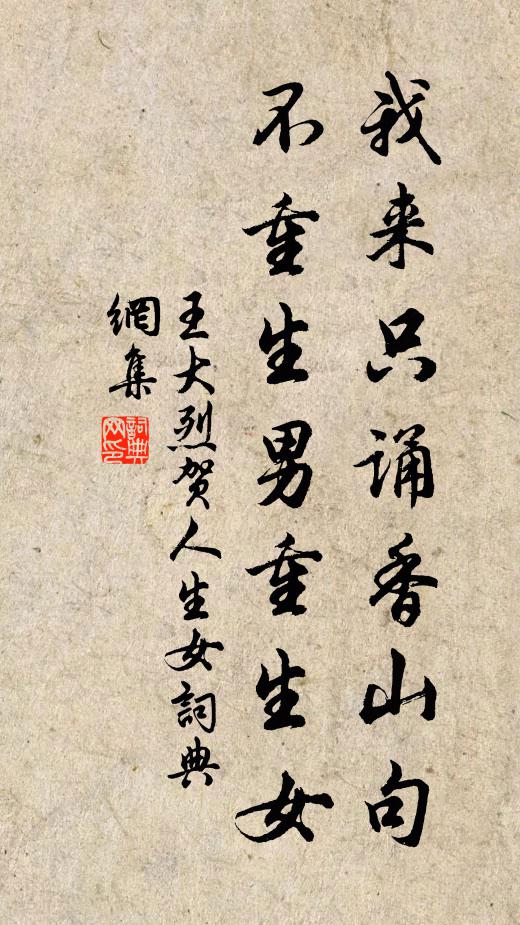 我来只诵香山句
不重生男重生女
王大烈贺人生女詞典
網集
詞典網印